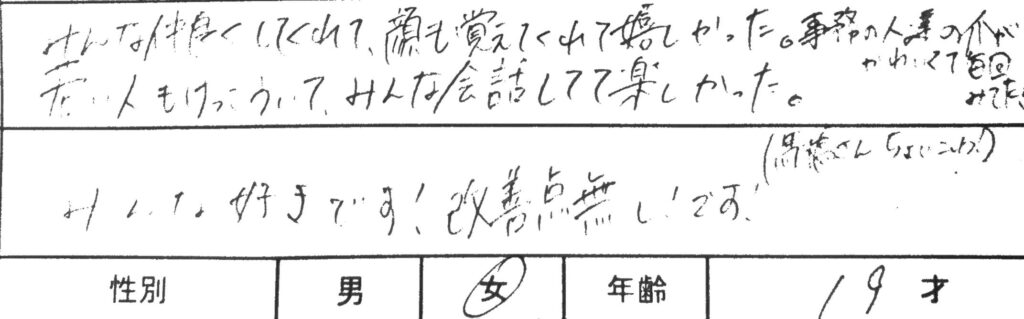 みんな仲良くしてくれて、顔も覚えてくれて嬉しかった。事務の人達の爪が
かわいくて毎回
みてた
若い人もけっこういて、みんな会話してて楽しかった。
(高橋さんちょいこわ!)
みんな好きです!改善点無し!です!
性別 男 女 年齢 19 才